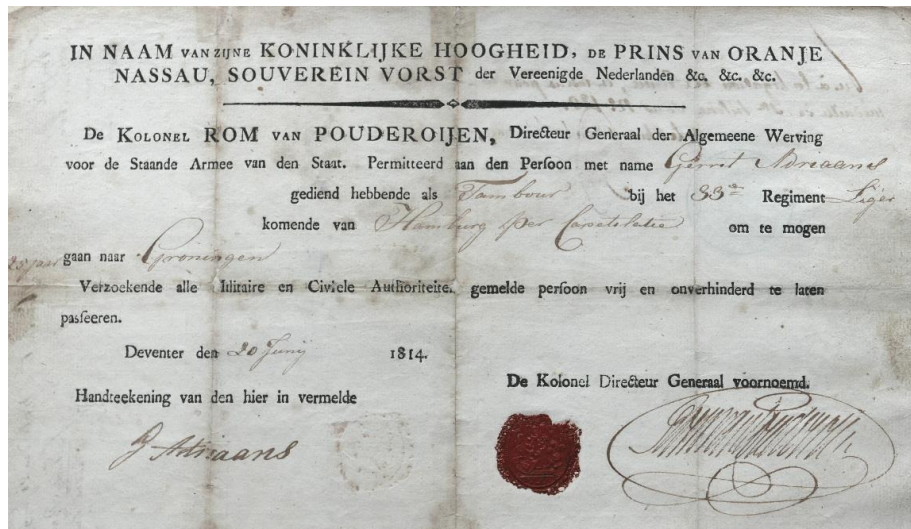 IN NAAM VAN ZIJNE KONINKLIJKE HOOGHEID, DE PRINS VAN ORANJE
NASSAU, SOUVEREIN VORST der Vereenigde Nederlanden &c. &c. &c.
De KOLONEL ROM VAN POUDEROIJEN, Directeur Generaal der Algemeene Werving
voor de Staande Armee van den Staat. Permitteerd aan den Persoon met name Gerrit Adriaans
gediend hebbende als Tambour bij het 33e Regiment Liger
komende van Hamburg per Capitulatie om te mogen
gaan naar Groningen
Verzoekende alle Militaire en Civiele Authoriteite. gemelde persoon vrij en onverhinderd te laten
passeeren.
Deventer den 20 Junij 1814.
De Kolonel Directeur Generaal voornoemd.
Handteekening van den hier in vermelde
J Adriaans